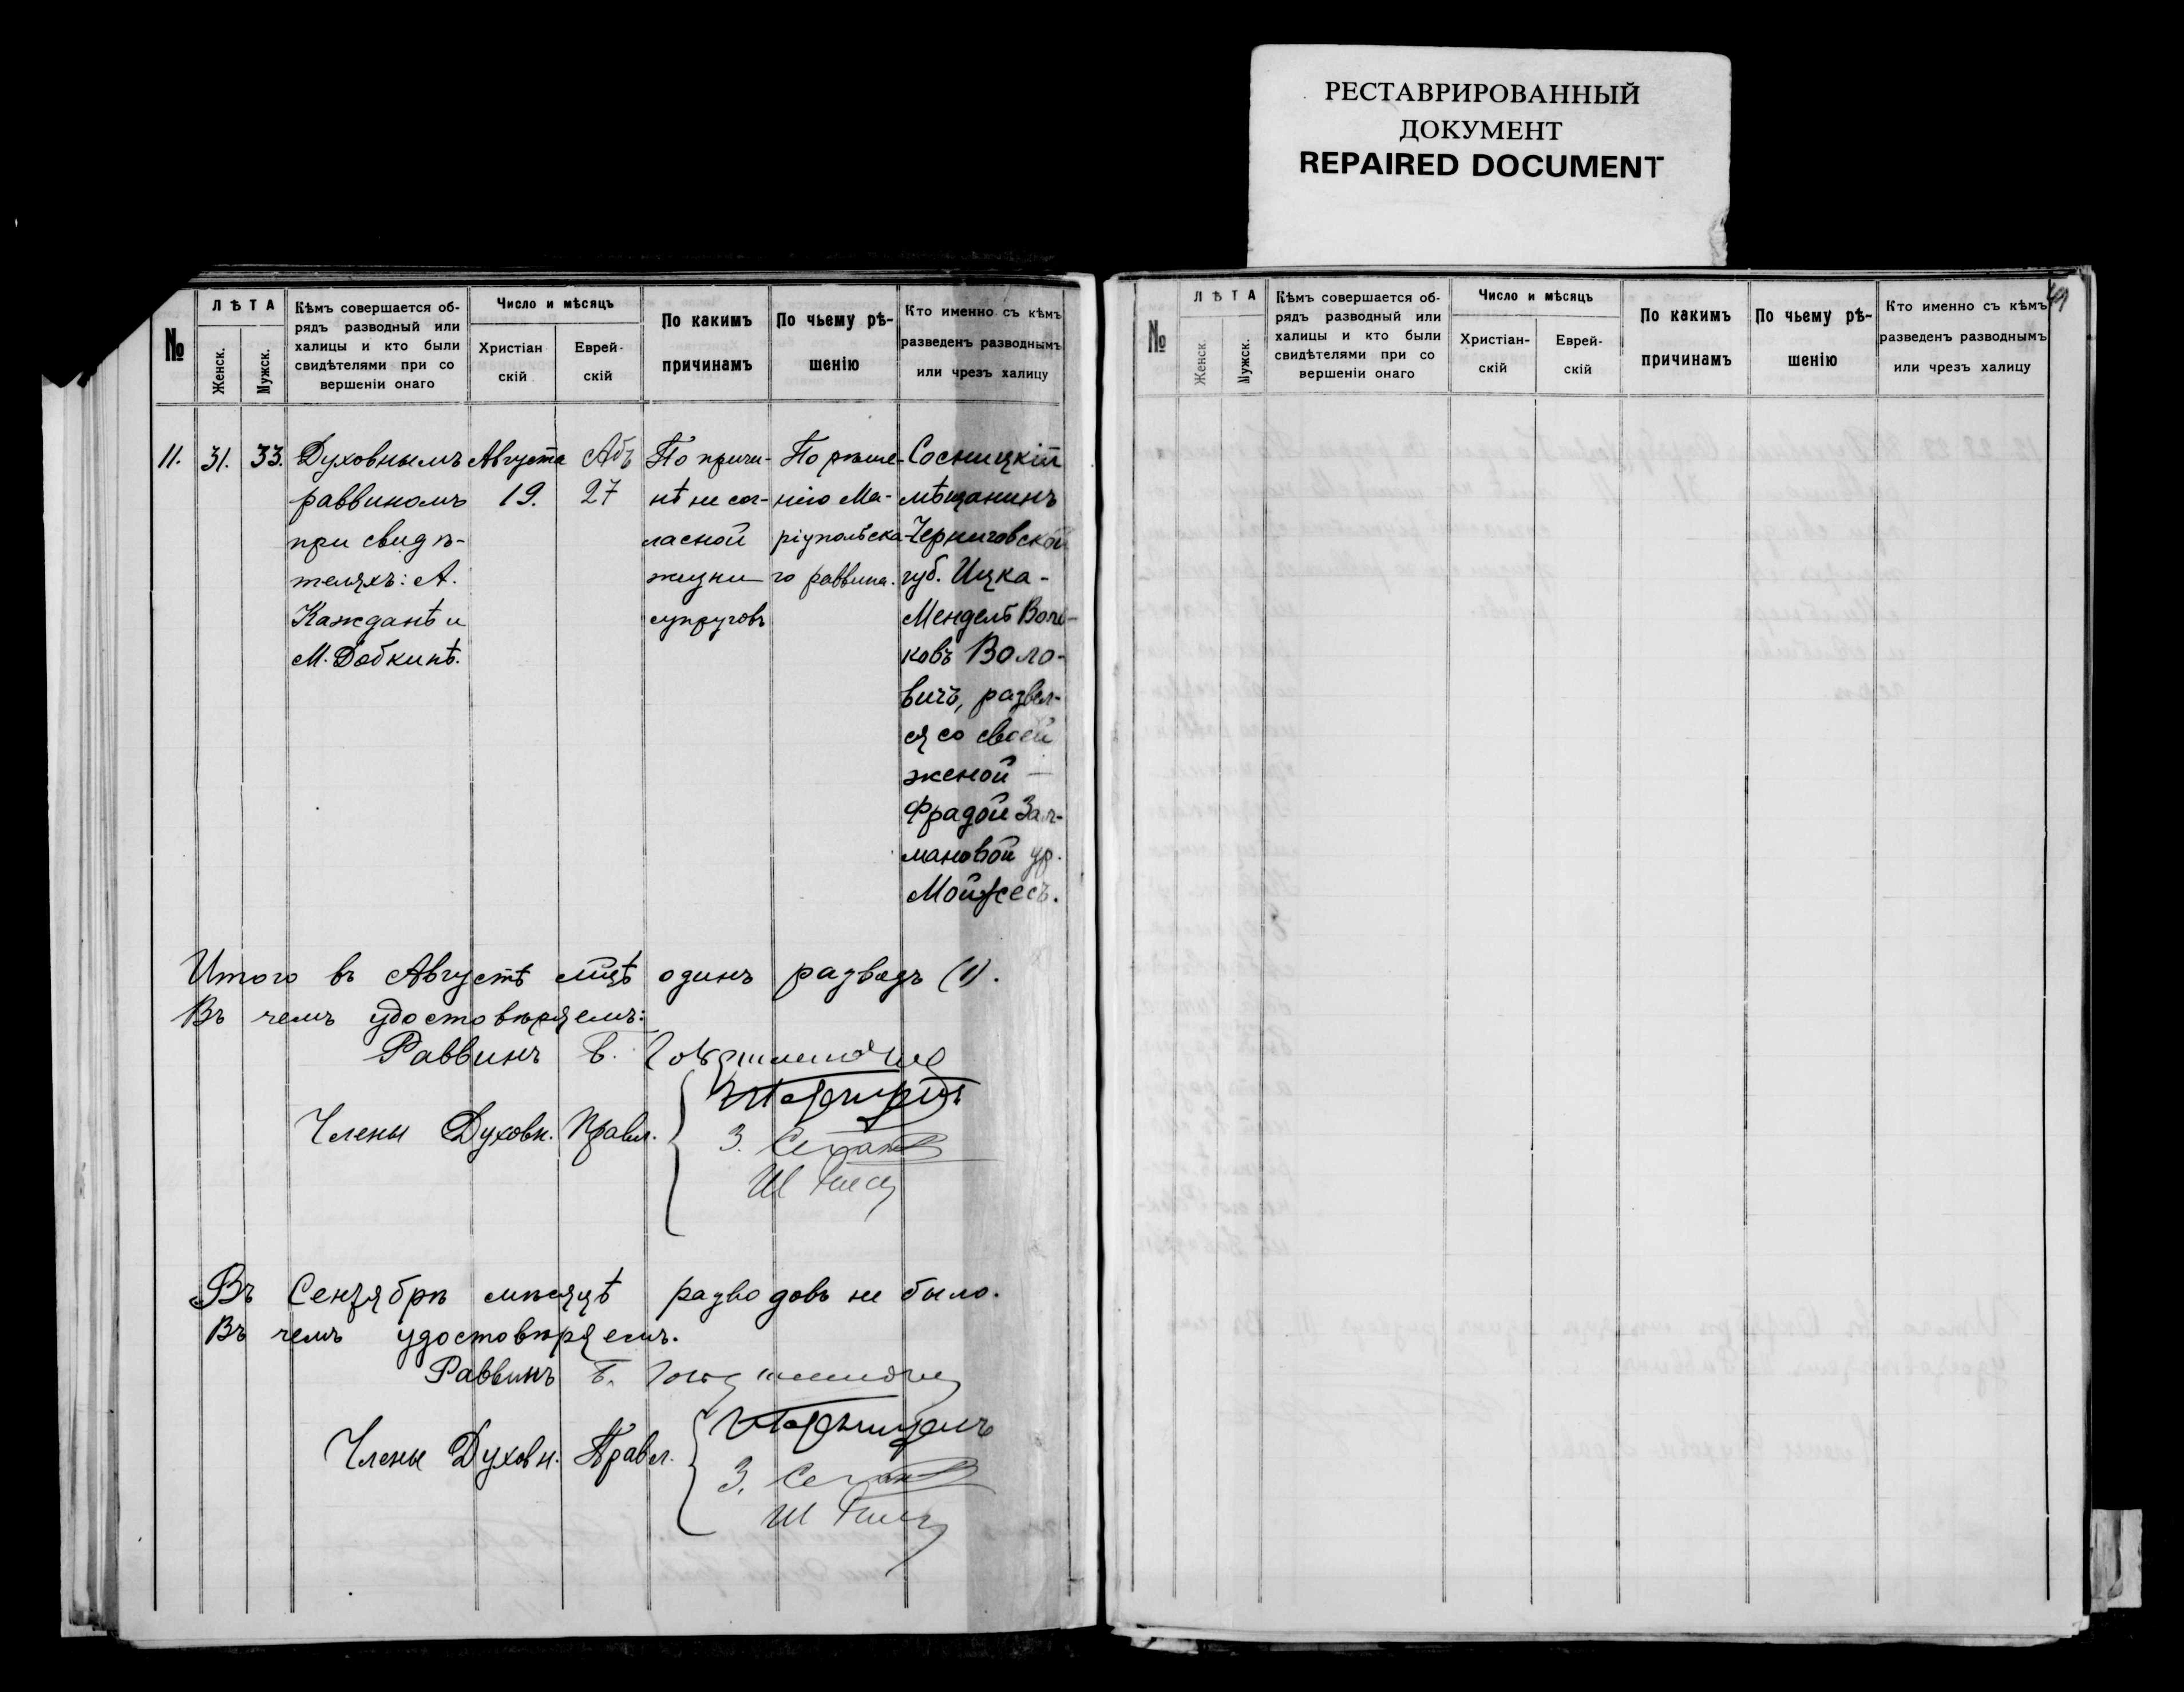 РЕСТАВРИРОВАННЫЙ
ДОКУМЕНТ
REPAIRED DOCUMENT
№
ЛѢТА
Женск.
Мужск.
Кѣмъ совершается об-
рядъ разводный или
халицы и кто были
свидѣтелями при со
вершеніи онаго
Число и мѣсяцъ
Христіан
скій
Еврей-
скій
По какимъ
причинамъ
По чьему рѣ-
шенію
Кто именно съ кѣмъ
разведенъ разводнымъ
или чрезъ халицу
11.
31.
33.
Духовнымъ
раввиномъ
при свидѣ-
теляхъ: А.
Кажданѣ и
М. Добкинѣ.
Августа
19.
Абъ
27
По причи-
нѣ не сог-
ласной
жизни
супруговъ
По рѣше-
нію Ма-
ріупольска-
го раввина.
Сосницкій
мѣщанинъ
Черниговской
губ. Ицка-
Мендель
ковъ Воло-
вичъ, развел-
ся со своей
женой —
Фрадой Зал-
мановой ур.
Мойжесъ.
Итого въ Августѣ мцѣ одинъ разводъ (1).
Въ чемъ удостовѣряемъ:
Раввинъ
Члены Духовн. Правл.
З.
Ш
Въ Сентябрѣ мѣсяцѣ разводовъ не было.
Въ чемъ удостовѣряемъ.
Раввинъ
Члены Духовн. Правл.
З.
Ш
№
ЛѢТА
Женск.
Мужск.
Кѣмъ совершается об-
рядъ разводный или
халицы и кто были
свидѣтелями при со
вершеніи онаго
Число и мѣсяцъ
Христіан-
скій
Еврей-
скій
По какимъ
причинамъ
По чьему рѣ-
шенію
Кто именно съ кѣмъ
разведенъ разводнымъ
или чрезъ халицу